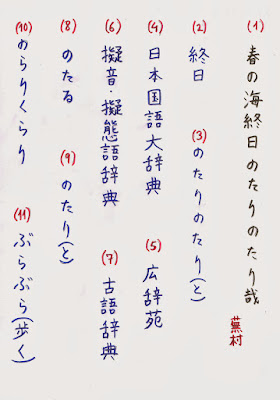 (1) 春の海終日のたりのたり哉
蕪村
(2) 終日
(3) のたりのたり(と)
(4) 日本国語大辞典
(5) 広辞苑
(6) 擬音・擬態語辞典
(7) 古語辞典
(8) のたる
(9) のたり(と)
(10) のらりくらり
(11) ぶらぶら(歩く)